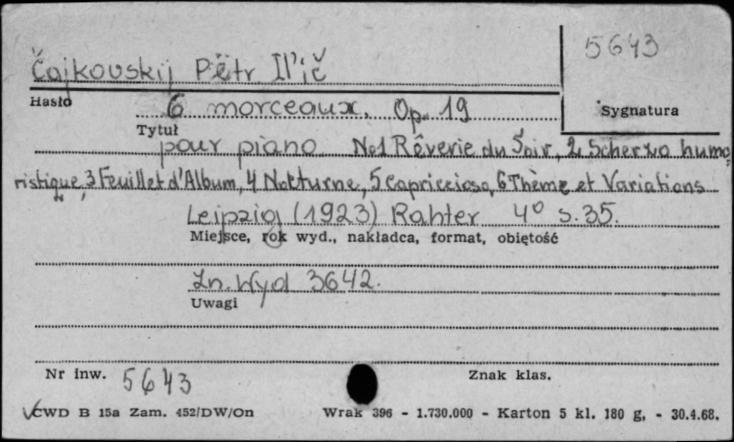 5643
Čajkovskij Pëtr Il'ič
Hasło
Sygnatura
6 morceaux. Op. 19
Tytuł
pour piano No1 Rêverie du Soir, 2. Scherzo humo
ristique, 3 Feuillet d'Album, 4 Notturne, 5 Capriccioso, 6 Thème et Variations
Leipzig (1923) Rahter 4° s. 35.
Miejsce, rok wyd., nakładca, format, objętość
Zn. Wyd 3642.
Uwagi
Nr inw. 5643
Znak klas.
CWD B 15a Zam. 452/DW/On Wrak 396 - 1.730.000 - Karton 5 kl. 180 g, - 30.4.68.